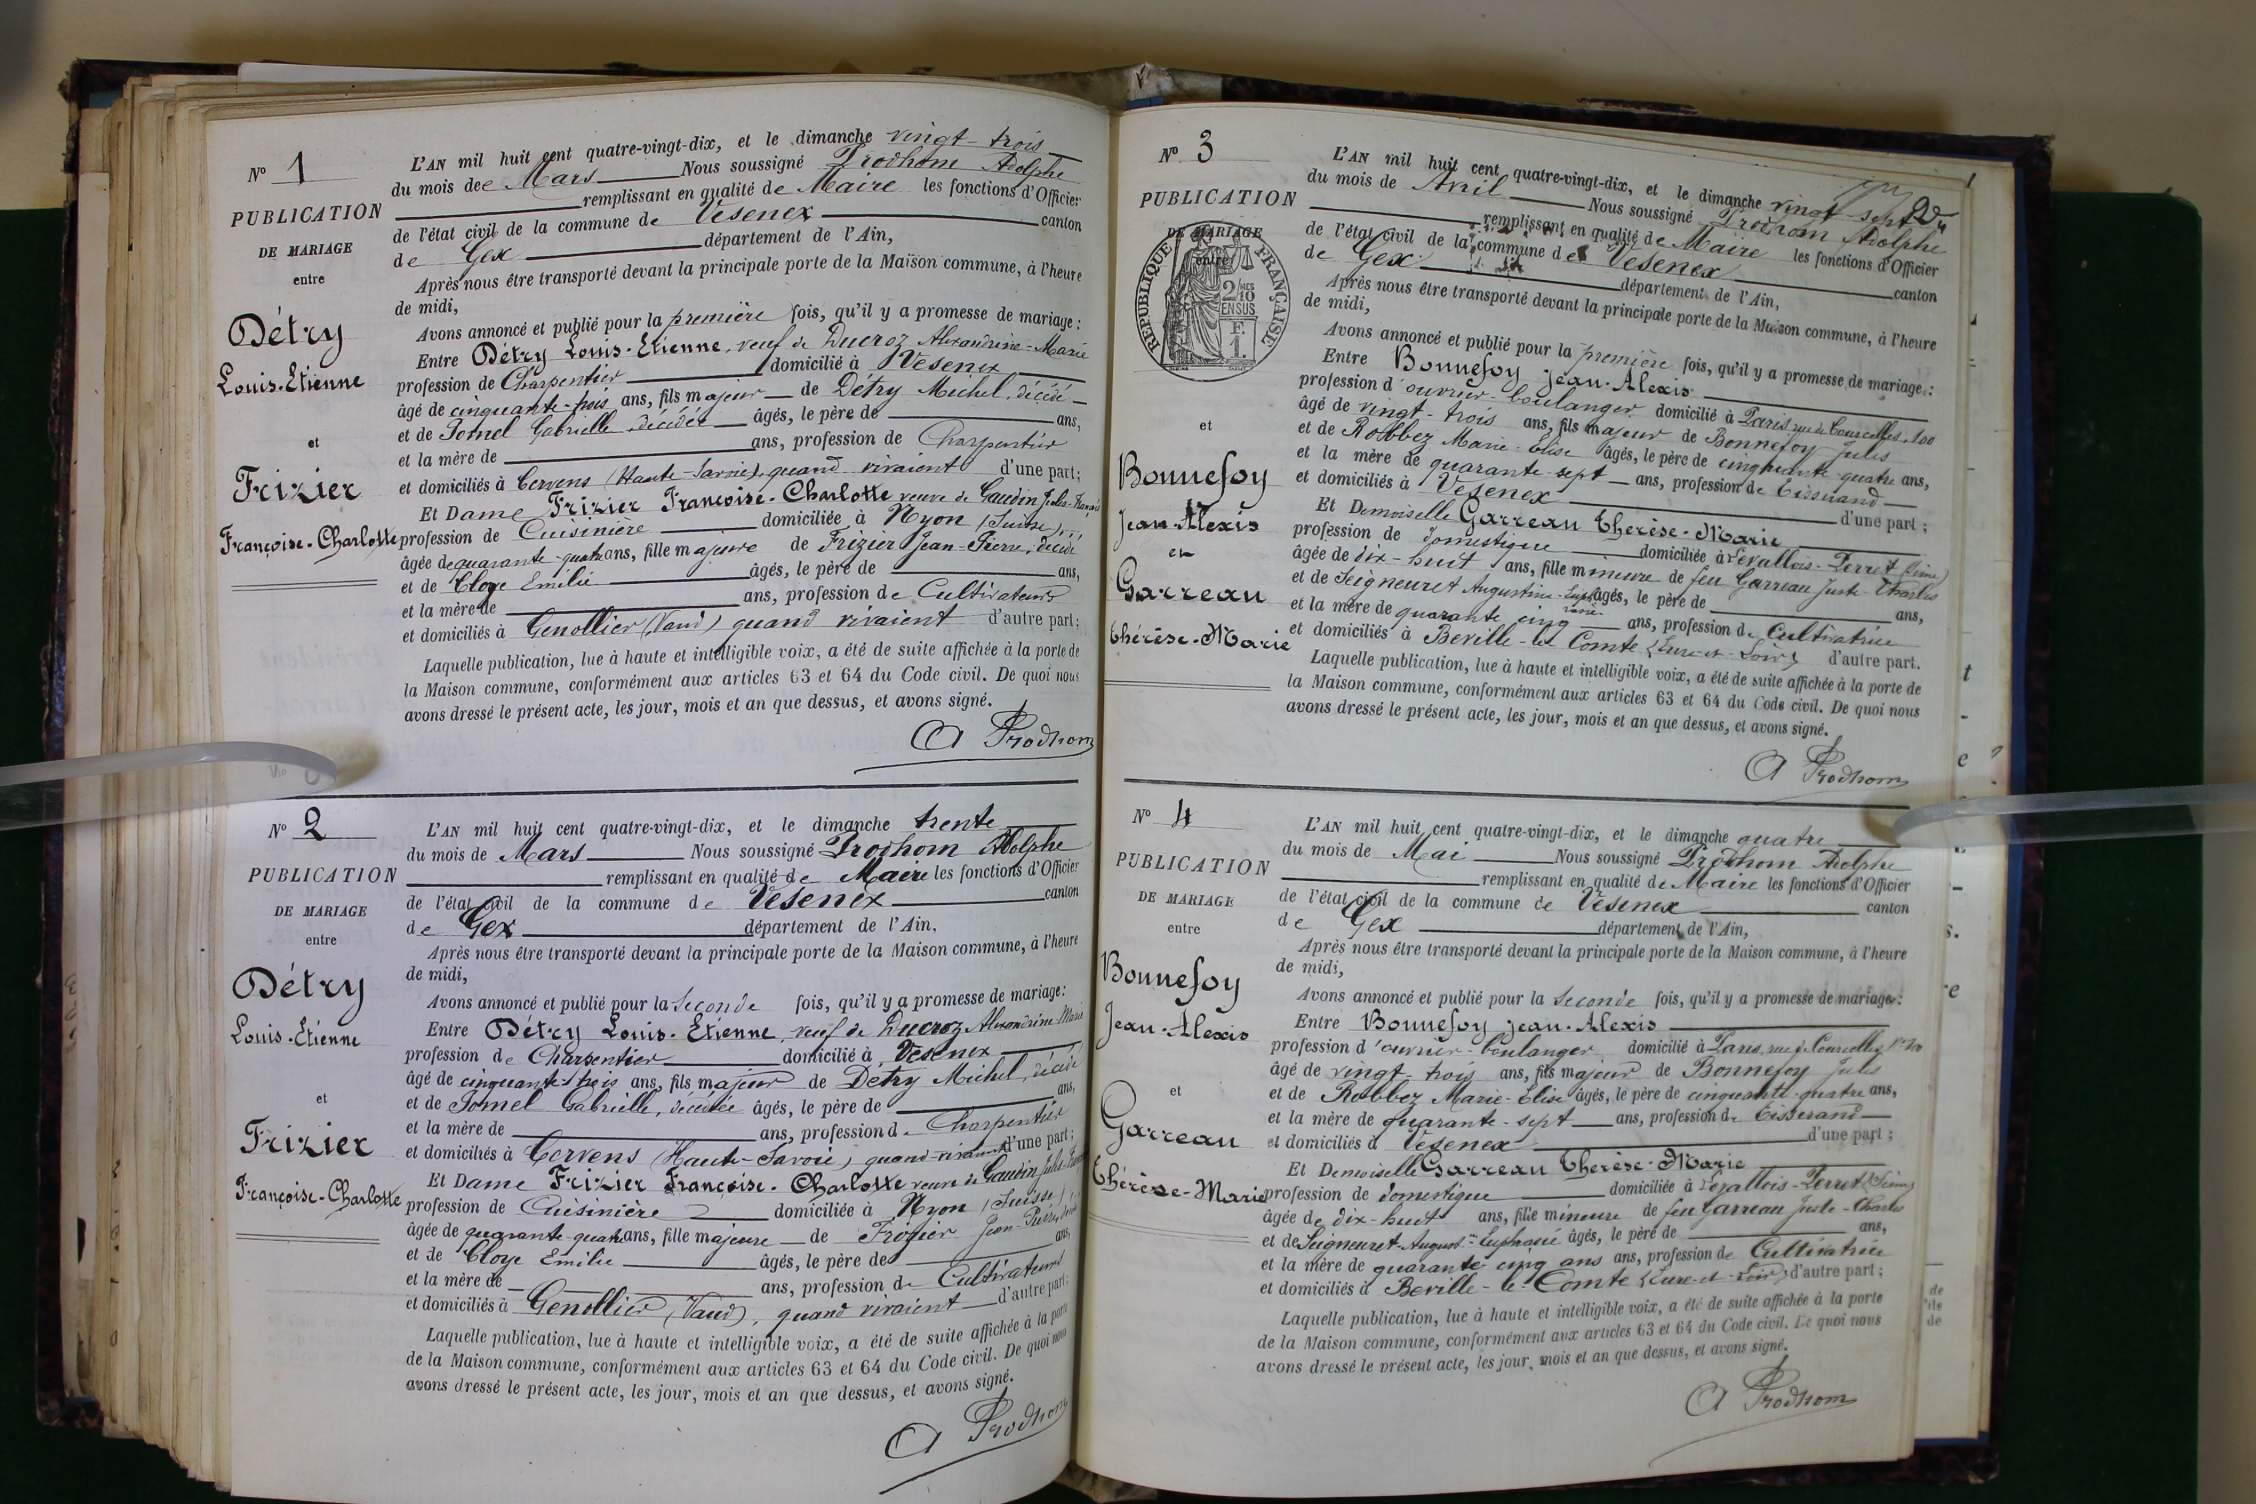 N° 1
PUBLICATION
DE MARIAGE
entre
Détry
Louis-Etienne
et
Frizier
Françoise-Charlotte
L'AN mil huit cent quatre-vingt-dix, et le dimanche vingt-trois
du mois de Mars Nous soussigné Prodhom Adolphe
remplissant en qualité de Maire les fonctions d'Officier
de l'état civil de la commune de Vésenex canton
de Gex département de l'Ain,
Après nous être transporté devant la principale porte de la Maison commune, à l'heure
de midi,
Avons annoncé et publié pour la première fois, qu'il y a promesse de mariage :
Entre Détry Louis-Etienne, veuf de Ducroz Alexandrine-Marie
profession de Charpentier domicilié à Vésenex
âgé de cinquante-trois ans, fils majeur de Détry Michel, décédé
et de Jomel Gabrielle décédée âgés, le père de ans,
et la mère de ans, profession de Charpentier
et domiciliés à Cervens (Haute-Savoie), quand vivaient d'une part;
Et Dame Frizier Françoise-Charlotte veuve de Gaudin Jules-François
profession de Cuisinière domiciliée à Nyon (Suisse),
âgée de quarante-quatre ans, fille majeure de Frizier Jean-Pierre, décédé
et de Cloye Emilie âgés, le père de ans,
et la mère de ans, profession de Cultivateurs
et domiciliés à Genollier (Vaud) quand vivaient d'autre part;
Laquelle publication, lue à haute et intelligible voix, a été de suite affichée à la porte de
la Maison commune, conformément aux articles 63 et 64 du Code civil. De quoi nous
avons dressé le présent acte, les jour, mois et an que dessus, et avons signé.
A Prodhom
N° 2
PUBLICATION
DE MARIAGE
entre
Détry
Louis-Etienne
et
Frizier
Françoise-Charlotte
L'AN mil huit cent quatre-vingt-dix, et le dimanche trente
du mois de Mars Nous soussigné Prodhom Adolphe
remplissant en qualité de Maire les fonctions d'Officier
de l'état civil de la commune de Vésenex canton
de Gex département de l'Ain,
Après nous être transporté devant la principale porte de la Maison commune, à l'heure
de midi,
Avons annoncé et publié pour la Seconde fois, qu'il y a promesse de mariage :
Entre Détry Louis-Etienne, veuf de Ducroz Alexandrine Marie
profession de Charpentier domicilié à Vésenex
âgé de cinquante-trois ans, fils majeur de Détry Michel, décédé
et de Jomel Gabrielle, décédée âgés, le père de ans,
et la mère de ans, profession de Charpentier
et domiciliés à Cervens (Haute-Savoie) quand vivaient d'une part;
Et Dame Frizier Françoise-Charlotte veuve de Gaudin Jules-
profession de Cuisinière domiciliée à Nyon (Suisse)
âgée de quarante-quatre ans, fille majeure de Frizier Jean-Pierre, décédé
et de Cloye Emilie âgés, le père de ans,
et la mère de ans, profession de Cultivateurs
et domiciliés à Genollier (Vaud), quand vivaient d'autre part;
Laquelle publication, lue à haute et intelligible voix, a été de suite affichée à la porte
de la Maison commune, conformément aux articles 63 et 64 du Code civil. De quoi nous
avons dressé le présent acte, les jour, mois et an que dessus, et avons signé.
A Prodhom
N° 3
PUBLICATION
DE MARIAGE
entre
RÉPUBLIQUE FRANÇAISE
2/10
EN SUS
F.
1.
et
Bonnefoy
Jean-Alexis
et
Garreau
Thérèse-Marie
L'AN mil huit cent quatre-vingt-dix, et le dimanche vingt-sept
du mois de Avril Nous soussigné Prodhom Adolphe
remplissant en qualité de Maire les fonctions d'Officier
de l'état civil de la commune de Vésenex canton
de Gex département de l'Ain,
Après nous être transporté devant la principale porte de la Maison commune, à l'heure
de midi,
Avons annoncé et publié pour la première fois, qu'il y a promesse de mariage :
Entre Bonnefoy Jean-Alexis
profession d'ouvrier-boulanger domicilié à Paris rue de Courcelles, 100
âgé de vingt-trois ans, fils majeur de Bonnefoy Jules
et de Robbez Marie-Elise âgés, le père de cinquante-quatre ans,
et la mère de quarante-sept ans, profession de Tisserand
et domiciliés à Vésenex d'une part ;
Et Demoiselle Garreau Thérèse-Marie
profession de domestique domiciliée à Levallois-Perret (Seine)
âgée de dix-huit ans, fille mineure de feu Garreau Juste-Charles
et de Seigneuret Augustine- âgés, le père de ans,
et la mère de quarante cinq ans, profession de Cultivatrice
et domiciliés à Beville-le Comte (Eure-et-Loir) d'autre part.
Laquelle publication, lue à haute et intelligible voix, a été de suite affichée à la porte de
la Maison commune, conformément aux articles 63 et 64 du Code civil. De quoi nous
avons dressé le présent acte, les jour, mois et an que dessus, et avons signé.
A Prodhom
N° 4
PUBLICATION
DE MARIAGE
entre
Bonnefoy
Jean-Alexis
et
Garreau
Thérèse-Marie
L'AN mil huit cent quatre-vingt-dix, et le dimanche quatre
du mois de Mai Nous soussigné Prodhom Adolphe
remplissant en qualité de Maire les fonctions d'Officier
de l'état civil de la commune de Vésenex canton
de Gex département de l'Ain,
Après nous être transporté devant la principale porte de la Maison commune, à l'heure
de midi,
Avons annoncé et publié pour la Seconde fois, qu'il y a promesse de mariage :
Entre Bonnefoy Jean-Alexis
profession d'ouvrier-boulanger domicilié à Paris, rue de Courcelles N° 100
âgé de vingt-trois ans, fils majeur de Bonnefoy Jules
et de Robbez Marie-Elise âgés, le père de cinquante-quatre ans,
et la mère de quarante-sept ans, profession de Tisserand
et domiciliés à Vésenex d'une part ;
Et Demoiselle Garreau Thérèse-Marie
profession de domestique domiciliée à Levallois-Perret (Seine)
âgée de dix-huit ans, fille mineure de feu Garreau Juste-Charles
et de Seigneuret-August.ne Euphrasie âgés, le père de ans,
et la mère de quarante cinq ans ans, profession de Cultivatrice
et domiciliés à Beville-le-Comte (Eure-et-Loir) d'autre part ;
Laquelle publication, lue à haute et intelligible voix, a été de suite affichée à la porte
de la Maison commune, conformément aux articles 63 et 64 du Code civil. De quoi nous
avons dressé le présent acte, les jour, mois et an que dessus, et avons signé.
A Prodhom